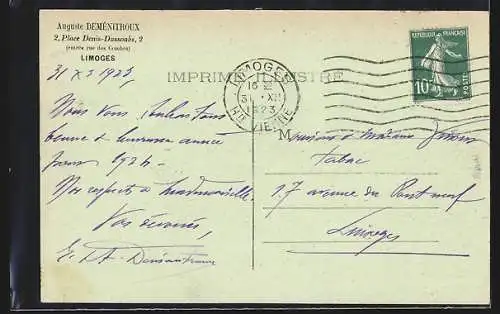 Auguste DEMÉNITROUX
2, Place Denis-Dussoubs, 2
(entrée rue des Combes)
LIMOGES
31 X 1923,
IMPRIMÉ ILLUSTRÉ
LIMOGES
16
31 XII
1923
HTE VIENNE
RÉPUBLIQUE FRANÇAISE
10c
POSTES
Nous Vous Souhaitons
bonne et heureuse année
pour 1924 -
Nos respects à Mademoiselle.
Vos dévoués,
Deménitroux
M
Monsieur & Madame
Tabac
27 avenue du Pont neuf
Limoges